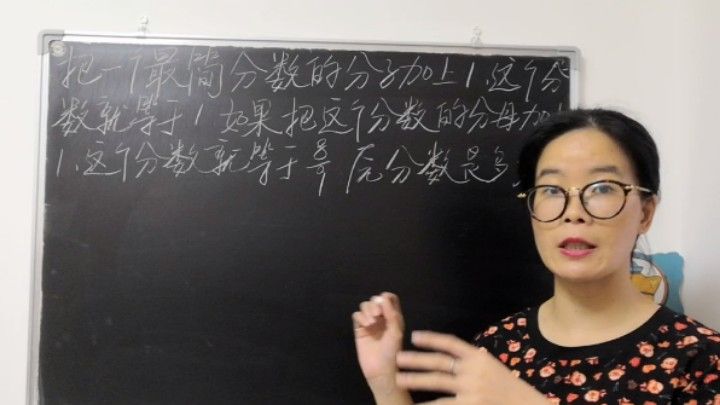 把一个最简分数的分子加上1.这个分
数就等于1 如果把这个分数的分母加上
1.这个分数就等于8/9 原分数是多